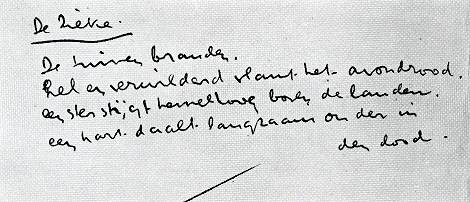 De Zieke.
De tuinen branden.
Hel en verwilderd vlamt het avondrood.
een ster stijgt hemelhoog boven de landen.
een hart daalt langzaam onder in
den dood.